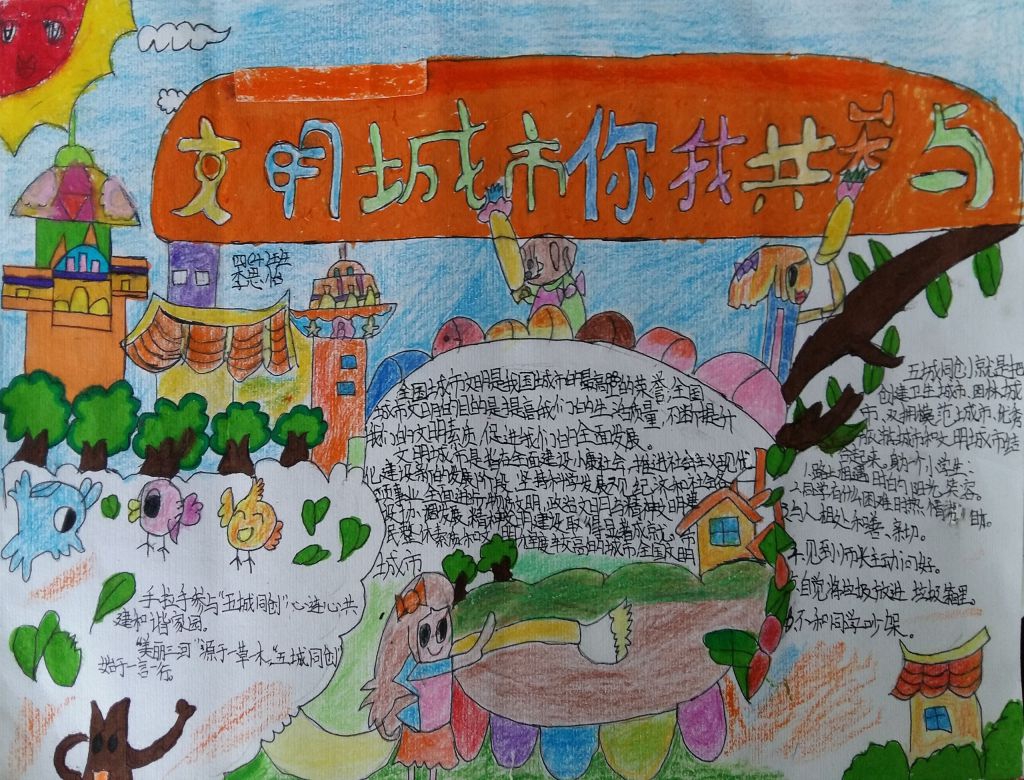 文明城市你我共参与
四(十)班
李思怡
全国城市文明是我国城市的最高的荣誉,全国
城市文明的目的是提高我们的生活质量,不断提升
我们的文明素质,促进我们的全面发展。
文明城市是指在全面建设小康社会,推进社会主义现代
化建设新的发展阶段,坚持科学发展观,经济和社会各
项事业全面进行,物质文明,政治文明与精神文明建
设协调发展,精神文明建设取得显著成就。市
民整体素质和文明程度较高的城市全国文明
城市
手拉手参与“五城同创”心连心共
建和谐家园。
美丽三河 源于一草一木,“五城同创”
始于一言一行。
五城同创,就是把
创建卫生城市、园林城
市、双拥模范城市、优秀
旅游城市和文明城市结
合起来。身为一个小学生:
1.路上相遇
阳光笑容。
2.同学有什么困难
3.与人相处和善、亲切。
4.见到师长主动问好。
5.自觉将垃圾放进垃圾箱里。
6.不和同学吵架。